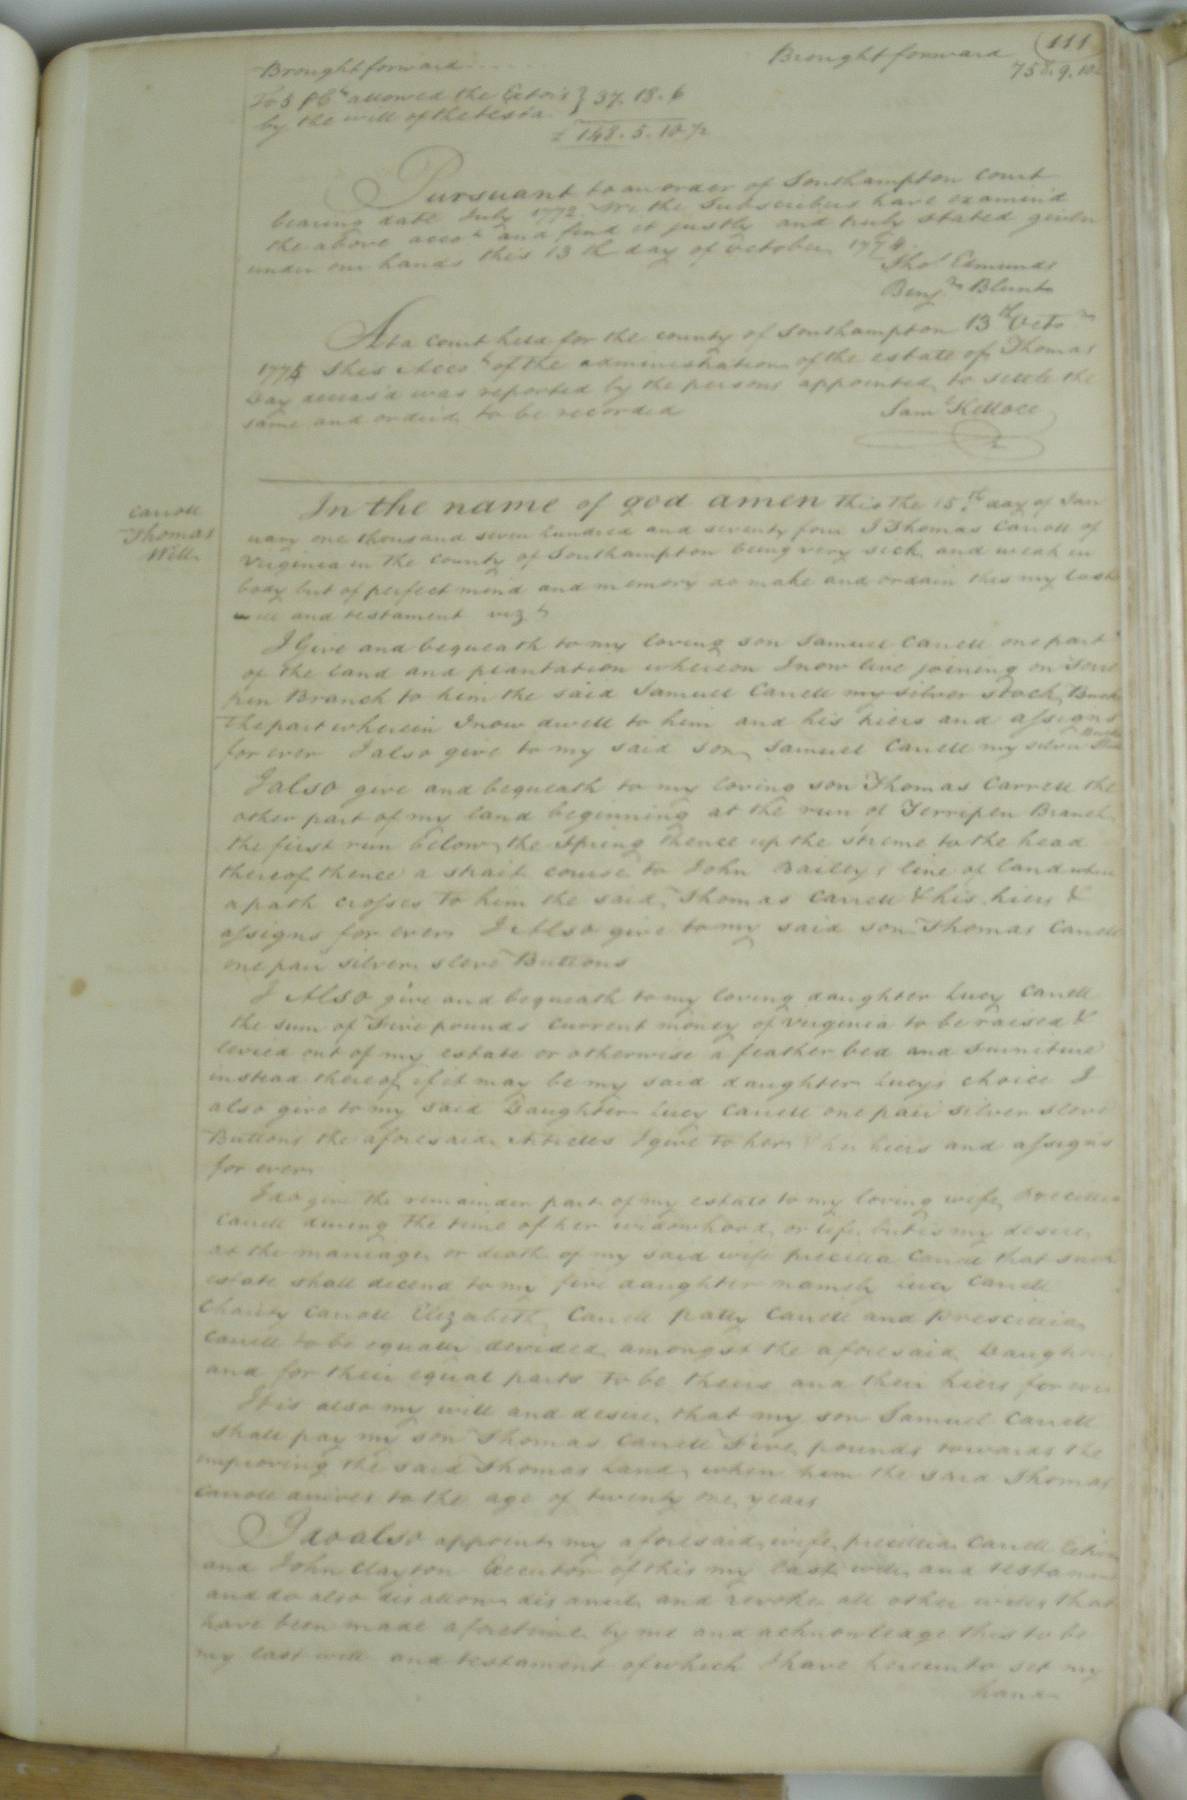 (111)
Brought forward . . . . Brought forward
758. 9. 10
To 5 pCt allowed the Extors } 37. 18. 6
by the will of the testa
£ 148. 5. 10 1/2
Pursuant to an order of Southampton Court
bearing date July 1772. We the Subscribers have examin'd
the above accot and find it justly and truly stated given
under our hands this 13th day of october
Thos Edmunds
Benjn Blunt
At a Court held for the county of Southampton 13th Octor
This Accot of the administration of the estate of Thomas
Day deceas'd was reported by the persons appointed to settle the
same and orderd to be recorded
Saml Kelloce
Carroll
Thomas
Will
In the name of god amen this the 15th day of Jan
uary one thousand seven hundred and seventy four I Thomas Carroll of
Virginia in the county of Southampton being very sick and weak in
body but of perfect mind and memory do make and ordain this my last
will and testament vizt
I Give and bequeath to my loving son Samuel Carrell one part
of the land and plantation whereon I now live joining on Terre
pen Branch to him the said Samuel Carrell my silver stock Buck
The part wherein I now dwell to him and his hiers and assigns
for ever I also give to my said son Samuel Carrell my silver Stock Buckle
I also give and bequeath to my loving son Thomas Carrell the
other part of my land beginning at the run of Terripen Branch
the first run below the Spring thence up the streme to the head
thereof thence a strait course to John Baileys line of land where
a path crosses To him the said Thomas Carrell & his hiers &
assigns for ever I Also give to my said son Thomas Carrell
one pair silver sleve Buttons
I Also give and bequeath to my loving daughter Lucy Carrell
the sum of Five pounds Current money of virginia to be raised &
levied out of my estate or otherwise a feather bed and furniture
instead thereof if it may be my said daughter Lucys choice I
also give to my said Daughter Lucy Carrell one pair silver sleve
Buttons the aforesaid Articles I give to her & her hiers and assigns
for ever
I do give the remainder part of my estate to my loving wife Precillia
Carrell during the time of her widowhood or life but is my desire
at the mariage or death of my said wife Precilla Carrell that such
estate shall decend to my five daughter namely Lucy Carrell
Charity Carroll Elizabeth Carrell patty Carrell and prescillia
Carrell to be equally devided amongst the aforesaid Daughters
and for their equal parts to be theirs and their hiers for ever
It is also my will and desire that my son Samuel Carrell
shall pay my son Thomas Carrell Five pounds towards the
improving the said Thomas Land when him the said Thomas
Carroll arives to the age of twenty one years
I do also appoint my aforesaid wife precillia Carrell
and John Clayton Executor of this my last will and testament
and do also disallow disanul and revoke all other wills that
have been made aforetime by me and acknowledge this to be
my last will and testament of which I have hereunto set my
hand